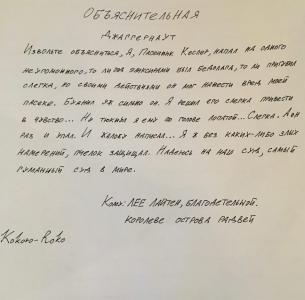 Объяснительная
Джаггернаут
Извольте объясниться, Я, Пасечник Коспор, напал на одного
неугомонного, то ли под эликсирами был бедолага, то ли пригубил
слегка, но своими действиями он мог нанести вред моей
пасеке. Буянил уж сильно он. Я решил его слегка привести
в чувство... Ну тюкнул я ему по голове лопатой... Слегка. А он
раз и упал. И жалобу написал... Я ж без каких-либо злых
намерений, пчелок защищал. Надеюсь на наш суд, самый
гуманный суд в мире.
Кому: ЛЕЕ ЛАЙТЕН, Благодетельной.
Королеве острова Рэдвей
Kokoro-Roko